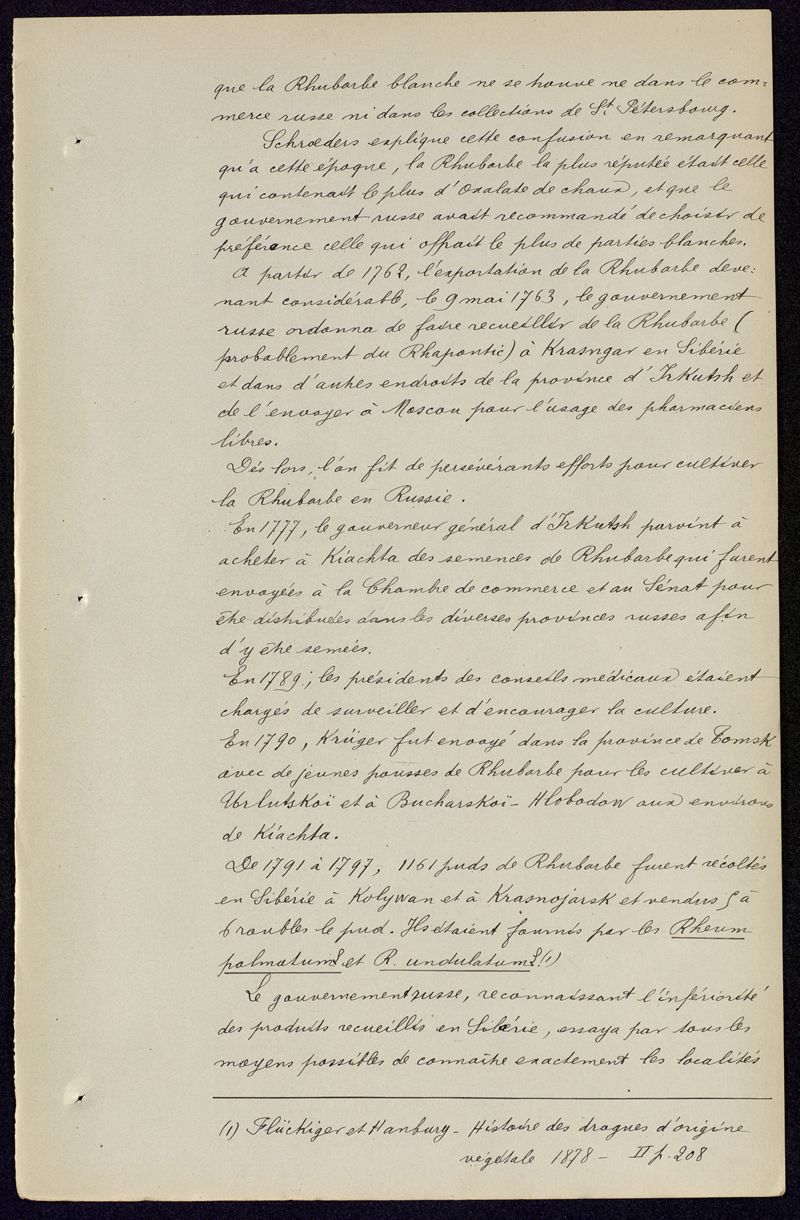 que la Rhubarbe blanche ne se trouve ne dans le com=
merce russe ni dans les collections de St Pétersbourg.
Schrœders explique cette confusion en remarquant
qu'a cette époque, la Rhubarbe la plus réputée était celle
qui contenait le plus d'Oxalate de chaux, et que le
gouvernement russe avait recommandé de choisir de
préférence celle qui offrait le plus de parties blanches.
A partir de 1762, l'exportation de la Rhubarbe deve=
nant considérable, le 9 mai 1763, le gouvernement
russe ordonna de faire recueillir de la Rhubarbe (
probablement du Rhapontic) à Krasngar en Sibérie
et dans d'autres endroits de la province d'Irkutsh et
de l'envoyer à Moscou pour l'usage des pharmaciens
libres.
Dés lors, l'on fit de persévérants efforts pour cultiver
la Rhubarbe en Russie.
En 1777, le gouverneur général d'Irkutsh parvint à
acheter à Kiachta des semences de Rhubarbe qui furent
envoyées à la Chambre de commerce et au Sénat pour
être distribuées dans les diverses provinces russes afin
d'y être semées.
En 1789, les présidents des conseils médicaux étaient
chargés de surveiller et d'encourager la culture.
En 1790, Krüger fut envoyé dans la province de Tomsk
avec de jeunes pousses de Rhubarbe pour les cultiver à
Urlutskoï et à Bucharskoï-Hlobodow aux environs
de Kiachta.
De 1791 à 1797, 1161 puds de Rhubarbe furent récoltés
en Sibérie à Kolywan et à Krasnojarsk et vendus 5 à
6 roubles le pud. Ils étaient fournis par les Rheum
palmatum L et R. undulatum L (1)
Le gouvernement russe, reconnaissant l'infériorité
des produits recueillis en Sibérie, essaya par tous les
moyens possibles de connaître exactement les localités
(1) Flückiger et Hanbury - Histoire des drogues d'origine
végétale 1878 - II p. 208